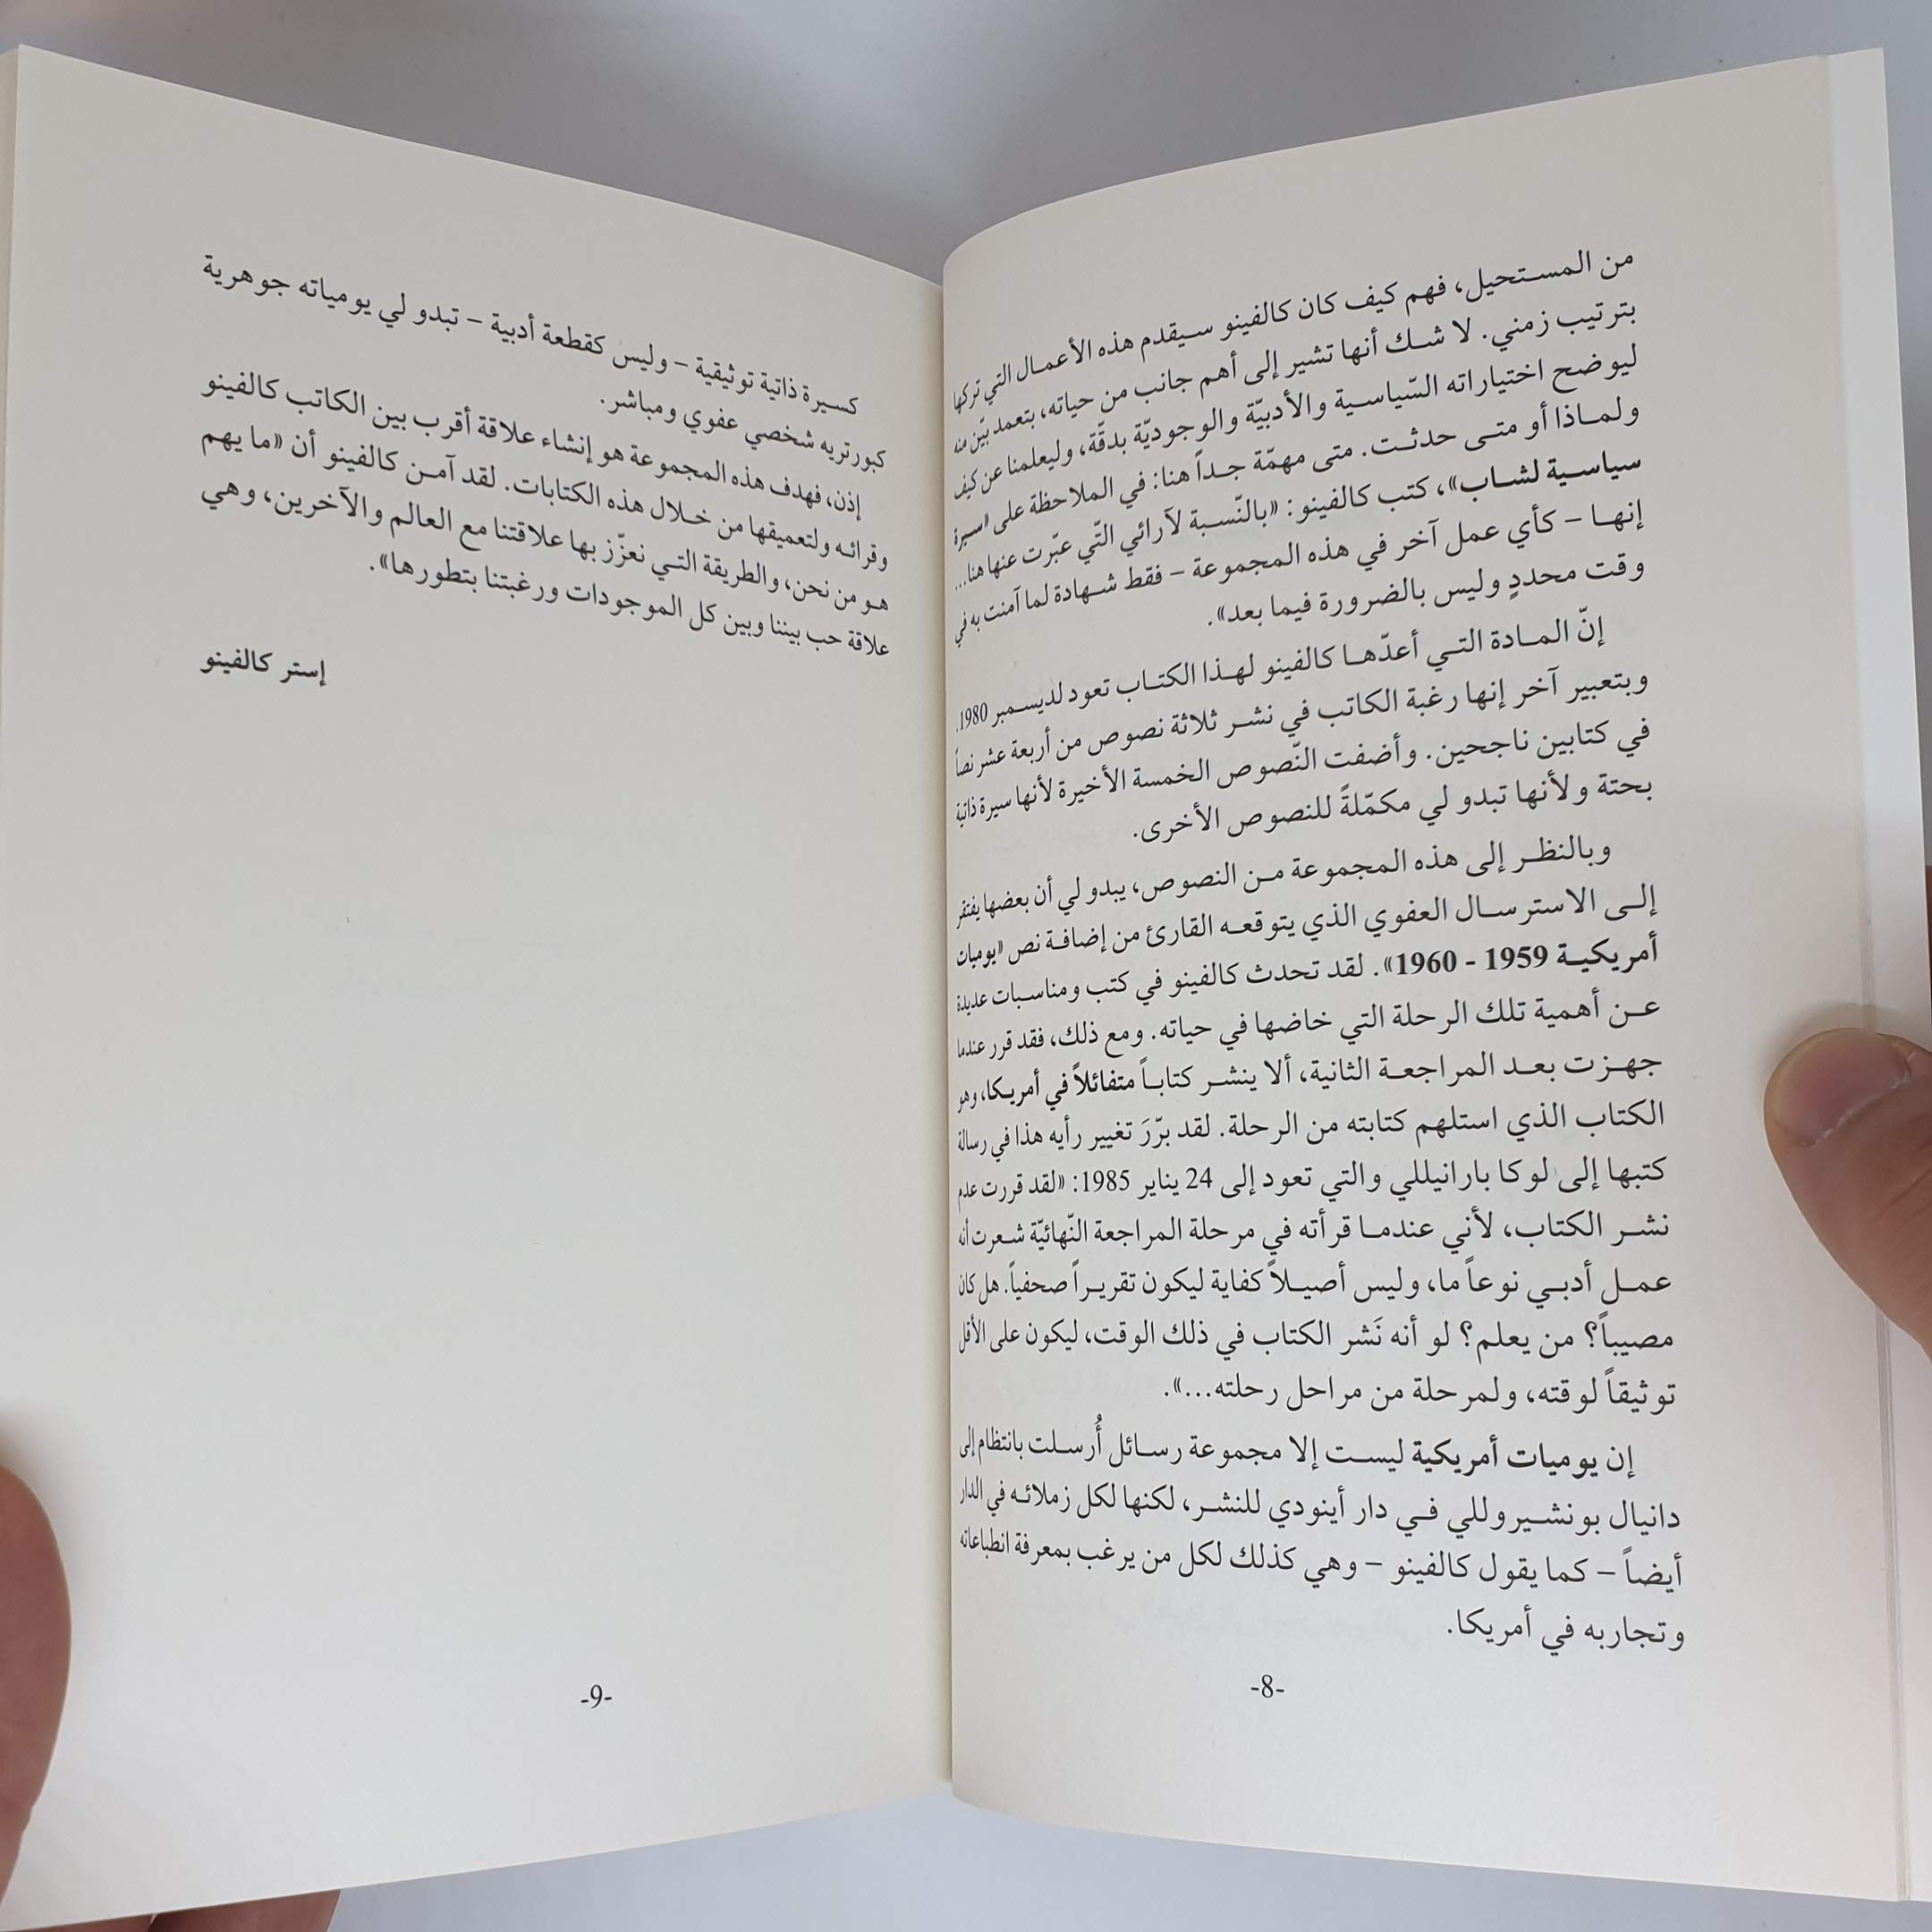 من المستحيل، فهم كيف كان كالفينو سيقدم هذه الأعمال التي تركها
بترتيب زمني. لا شك أنها تشير إلى أهم جانب من حياته، بتعمد بيّن منه
ليوضح اختياراته السّياسية والأدبيّة والوجوديّة بدقّة، وليعلمنا عن كيف
ولماذا أو متى حدثت. متى مهمّة جداً هنا: في الملاحظة على «سيرة
سياسية لشاب»، كتب كالفينو: «بالنّسبة لآرائي التّي عبّرت عنها هنا...
إنها – كأي عمل آخر في هذه المجموعة – فقط شهادة لما آمنت به في
وقت محددٍ وليس بالضرورة فيما بعد».
إنّ المادة التي أعدّها كالفينو لهذا الكتاب تعود لديسمبر 1980.
وبتعبير آخر إنها رغبة الكاتب في نشر ثلاثة نصوص من أربعة عشر نصاً
في كتابين ناجحين. وأضفت النّصوص الخمسة الأخيرة لأنها سيرة ذاتية
بحتة ولأنها تبدو لي مكمّلةً للنصوص الأخرى.
وبالنظر إلى هذه المجموعة من النصوص، يبدو لي أن بعضها يفتقر
إلى الاسترسال العفوي الذي يتوقعه القارئ من إضافة نص «يوميات
أمريكية 1959 - 1960». لقد تحدث كالفينو في كتب ومناسبات عديدة
عن أهمية تلك الرحلة التي خاضها في حياته. ومع ذلك، فقد قرر عندما
جهزت بعد المراجعة الثانية، ألا ينشر كتاباً متفائلاً في أمريكا، وهو
الكتاب الذي استلهم كتابته من الرحلة. لقد برّرَ تغيير رأيه هذا في رسالة
كتبها إلى لوكا بارانيللي والتي تعود إلى 24 يناير 1985: «لقد قررت عدم
نشر الكتاب، لأني عندما قرأته في مرحلة المراجعة النّهائيّة شعرت أنه
عمل أدبي نوعاً ما، وليس أصيلاً كفاية ليكون تقريراً صحفياً. هل كان
مصيباً؟ من يعلم؟ لو أنه نَشر الكتاب في ذلك الوقت، ليكون على الأقل
توثيقاً لوقته، ولمرحلة من مراحل رحلته...».
إن يوميات أمريكية ليست إلا مجموعة رسائل أُرسلت بانتظام إلى
دانيال بونشيروللي في دار أينودي للنشر، لكنها لكل زملائه في الدار
أيضاً – كما يقول كالفينو – وهي كذلك لكل من يرغب بمعرفة انطباعاته
وتجاربه في أمريكا.
-8-
كسيرة ذاتية توثيقية – وليس كقطعة أدبية – تبدو لي يومياته جوهرية
كبورتريه شخصي عفوي ومباشر.
إذن، فهدف هذه المجموعة هو إنشاء علاقة أقرب بين الكاتب كالفينو
وقرائه ولتعميقها من خلال هذه الكتابات. لقد آمن كالفينو أن «ما يهم
هو من نحن، والطريقة التي نعزّز بها علاقتنا مع العالم والآخرين، وهي
علاقة حب بيننا وبين كل الموجودات ورغبتنا بتطورها».
إستر كالفينو
-9-